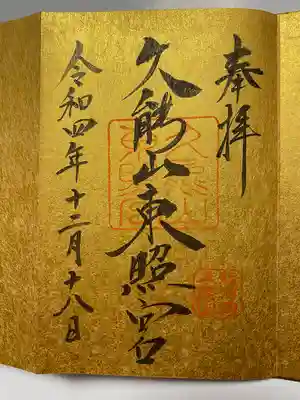 奉拝
久能山東照宮
令和四年十二月十八日